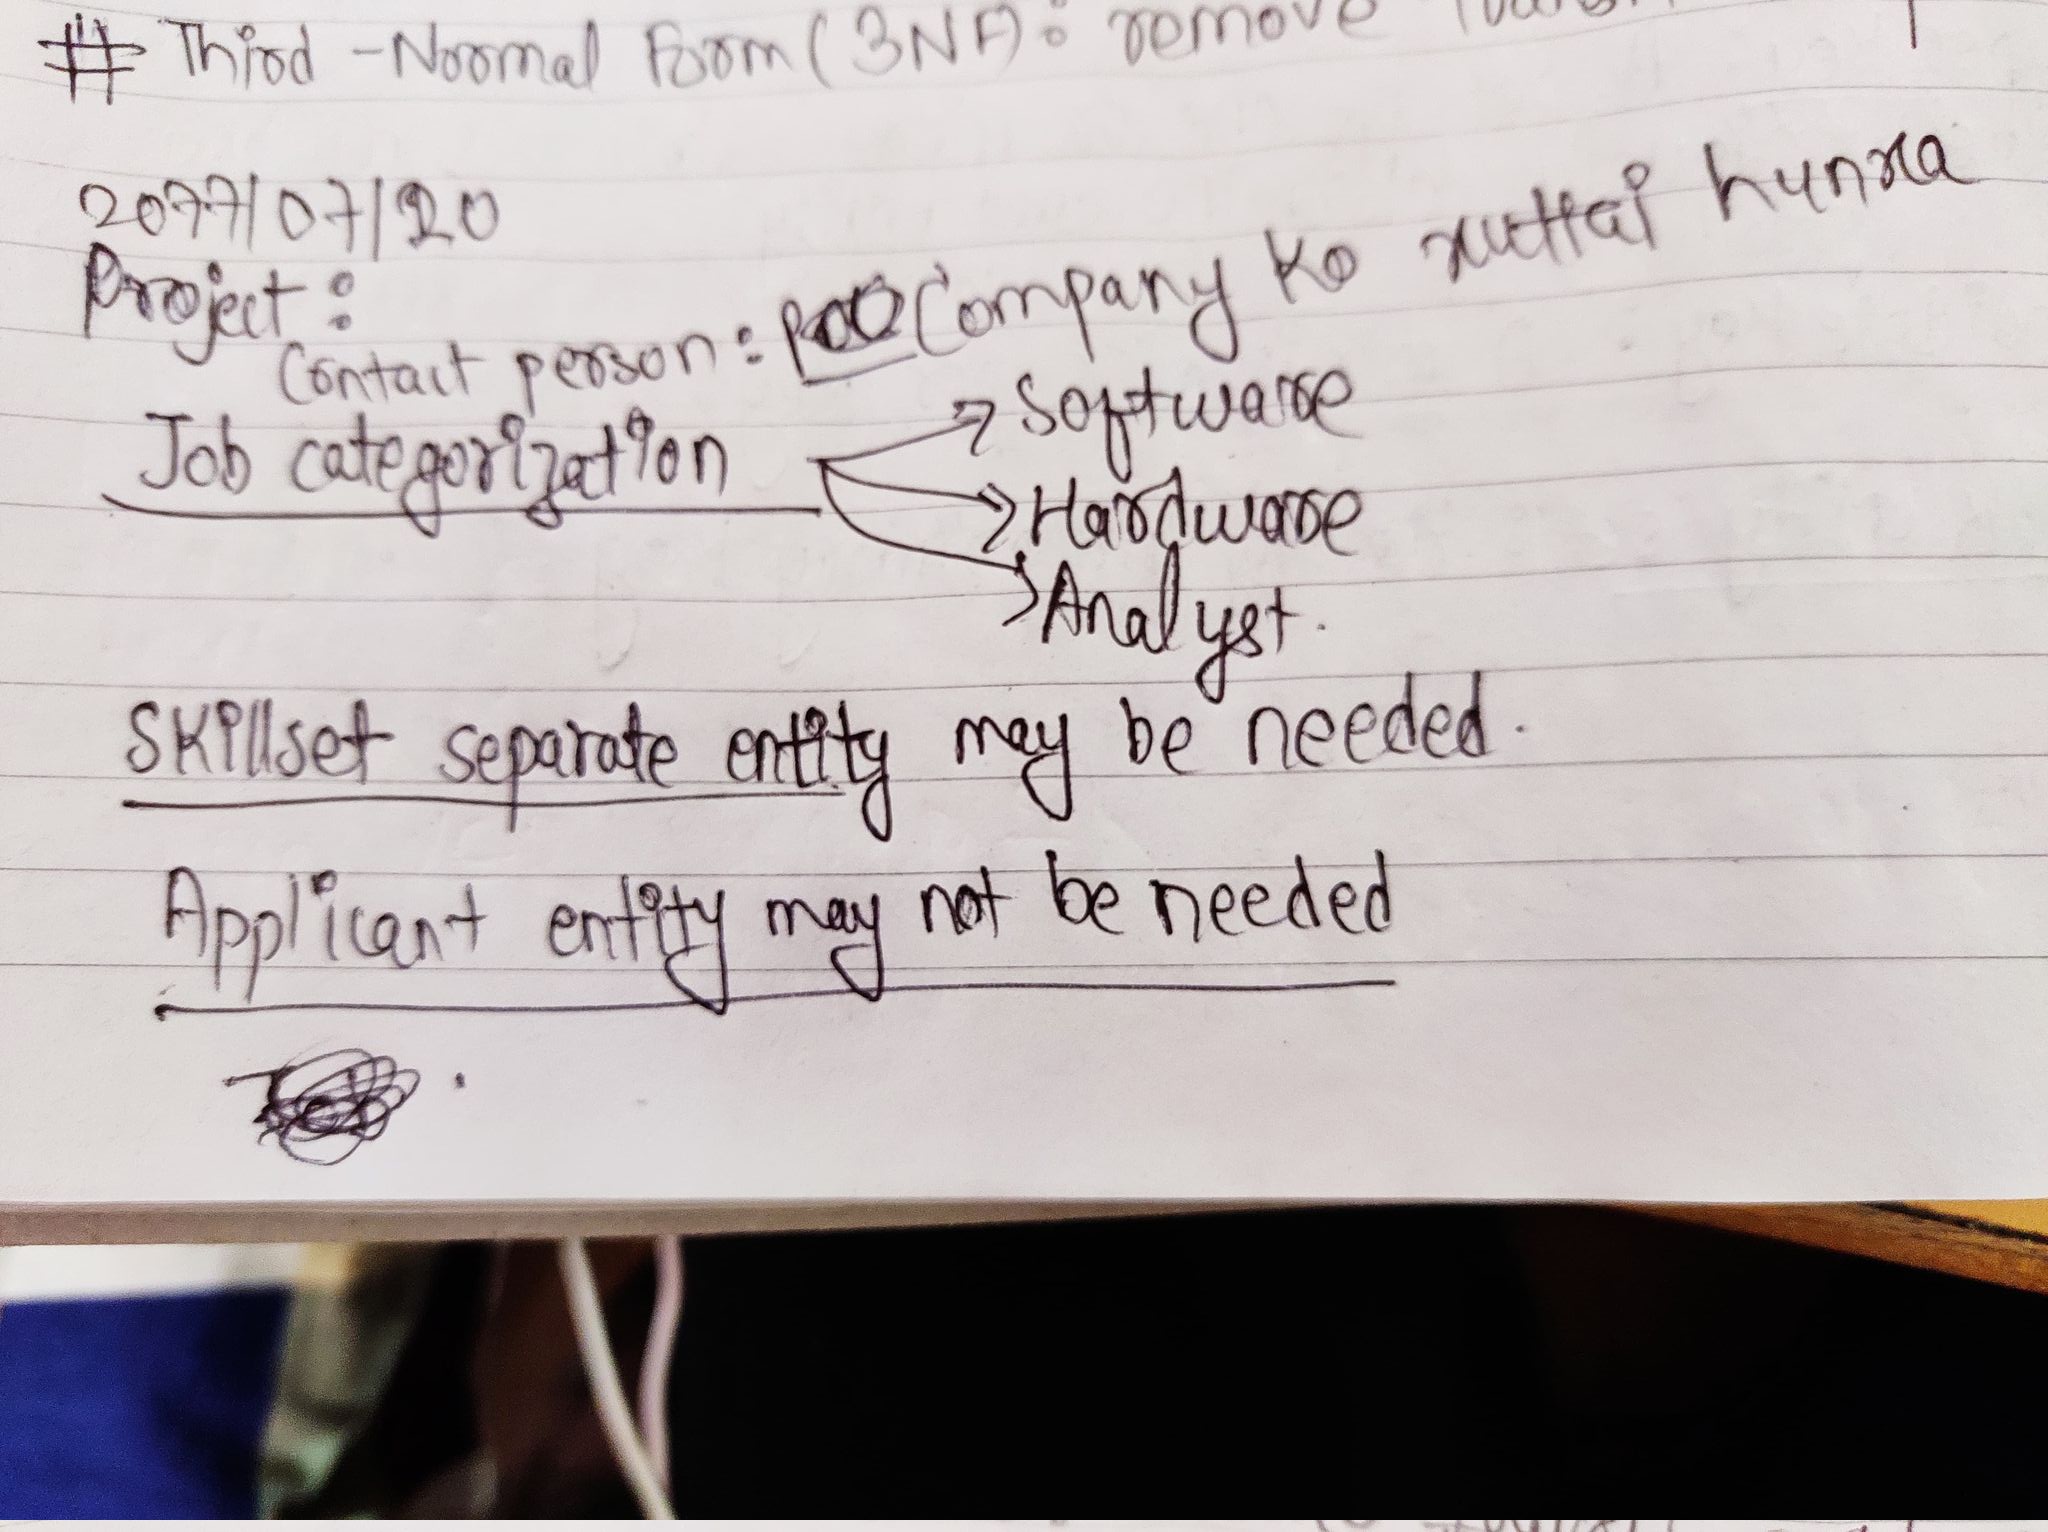 # Third-Normal Form (3NF): remove
2077/07/20
Project:
Contact person: Company ko xuttai hunxa
Job categorization → Software
→ Hardware
→ Analyst.
Skillset separate entity may be needed.
Applicant entity may not be needed